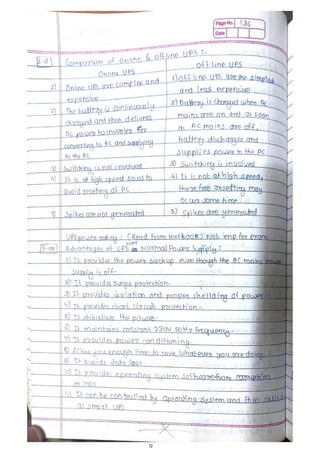 Page No. 1.35
Date
Comparison of Online & Offline UPS :-
Online UPS
Offline UPS
1) Online UPS are complex and
expensive
1) Offline UPS are the simplest
and least expensive
2) The battery is continuously
charged and then delivers
DC power to inverter for
converting to AC and supplying
to the PC
2) Battery is charged when AC
mains are on and as soon
as AC mains are off,
battery discharges and
supplies power to the PC
3) Switching is not involved
3) Switching is involved
4) It is at high speed so as to
avoid reseting of PC
4) It is not at high speed,
therefore resetting may
occur some time.
5) Spikes are not generated
5) Spikes are generated
UPS power rating : (Read From textbook) Not imp for exam
Advantages of UPS over Normal Power Supply :
1) It provides the power backup even though the AC mains power
supply is off.
2) It provides surge protection.
3) It provides isolation and proper sheilding of power
4) It provides short circuit protection.
5) It stabalizes the power.
6) It maintains constant 230V 50Hz frequency.
7) It provides power conditioning.
8) Allow you enough time to save whatever you are doing.
9) It avoids data loss.
10) It provides operating system software from corruption
or loss
11) It can be controlled by operating system and this called
as smart UPS
12